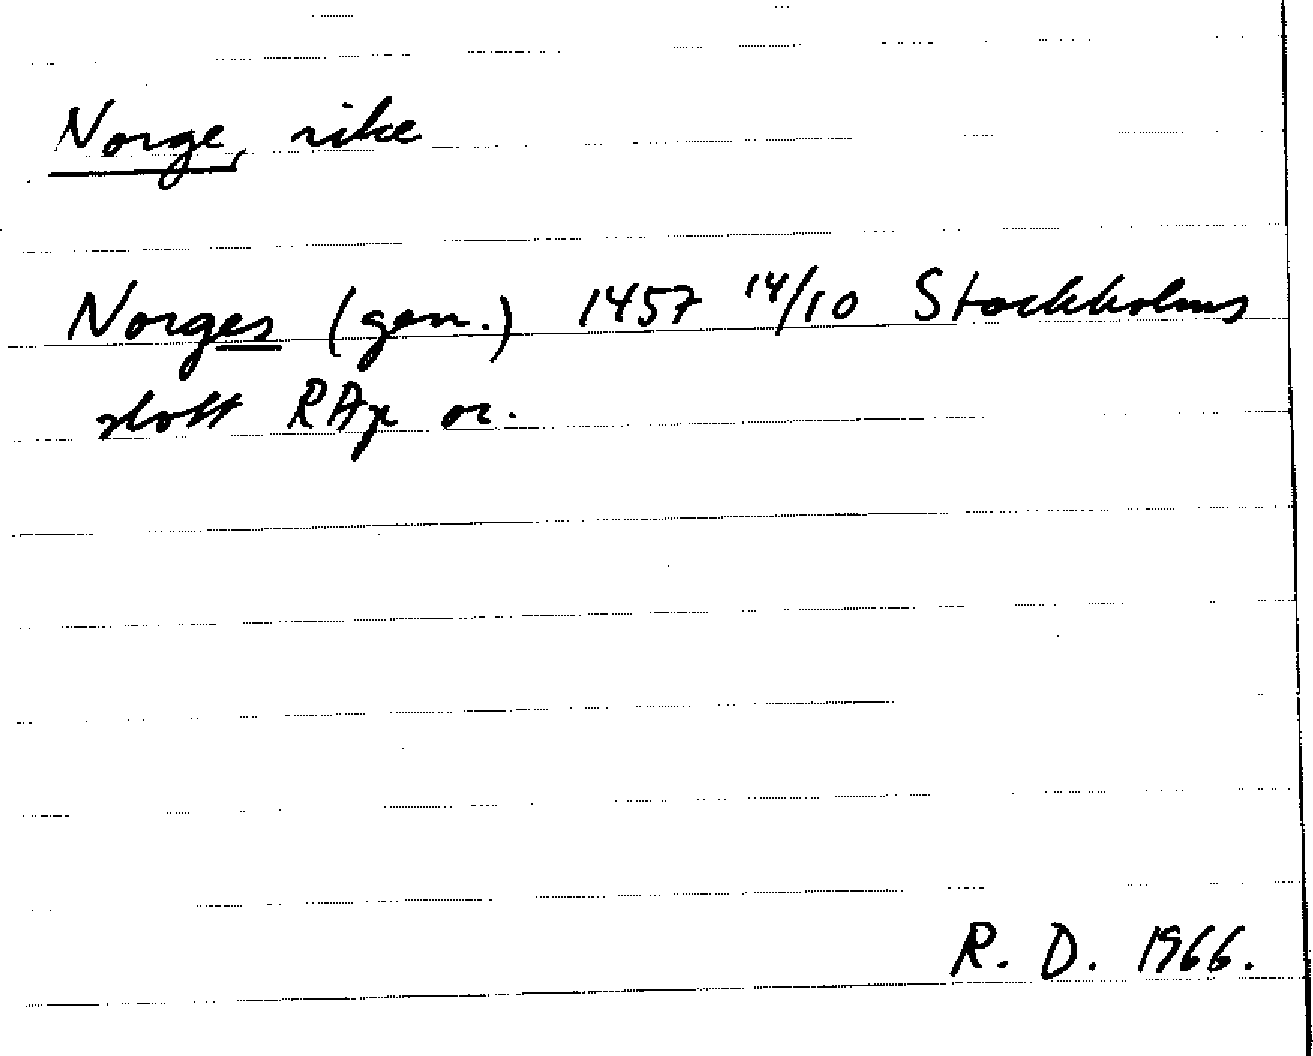 Norge, rike
Norges (gen.) 1457 14/10 Stockholms
slott RAp or.
R. D. 1966.